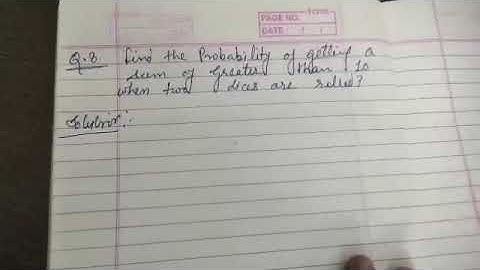 PAGE NO.
DATE / /
Q.8. Find the Probability of getting a
sum of greater than 10
when two dices are rolled?
Solution:-